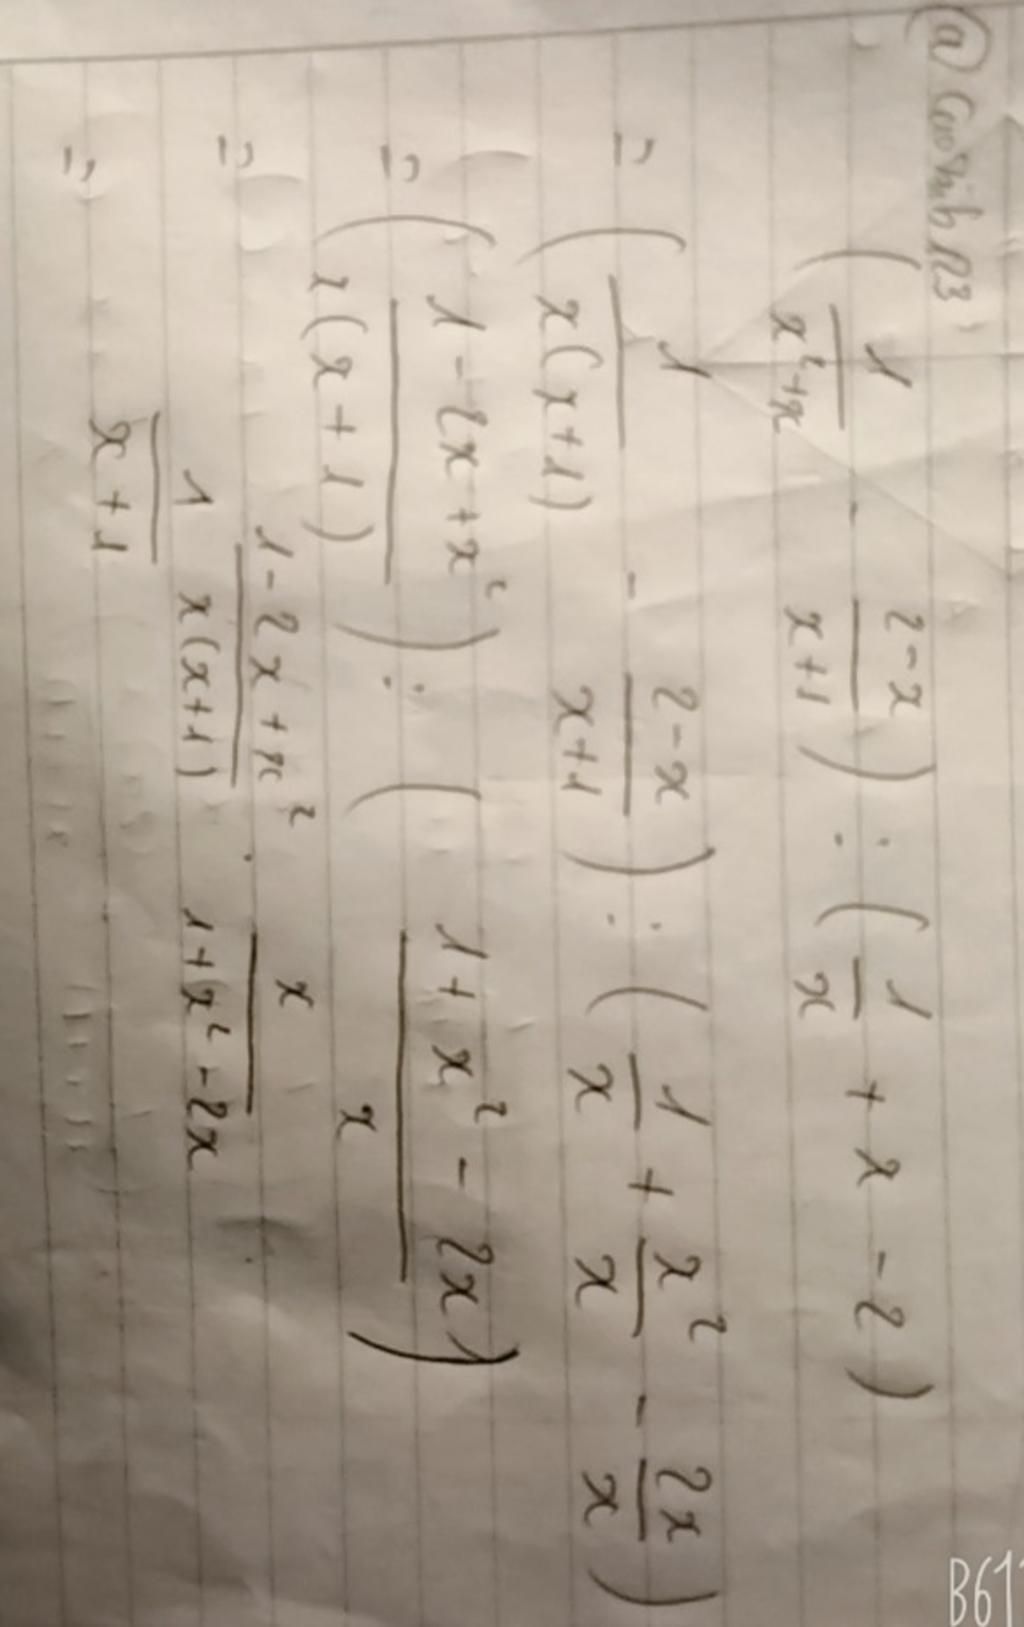 (1/(x²+x) - (2-x)/(x+1)) : (1/x + x - 2)
= (1/(x(x+1)) - (2-x)/(x+1)) : (1/x + x²/x - 2x/x)
= ((1-2x+x²)/(x(x+1))) : ((1+x²-2x)/x)
= (1-2x+x²)/(x(x+1)) . x/(1+x²-2x)
= 1/(x+1)
B61